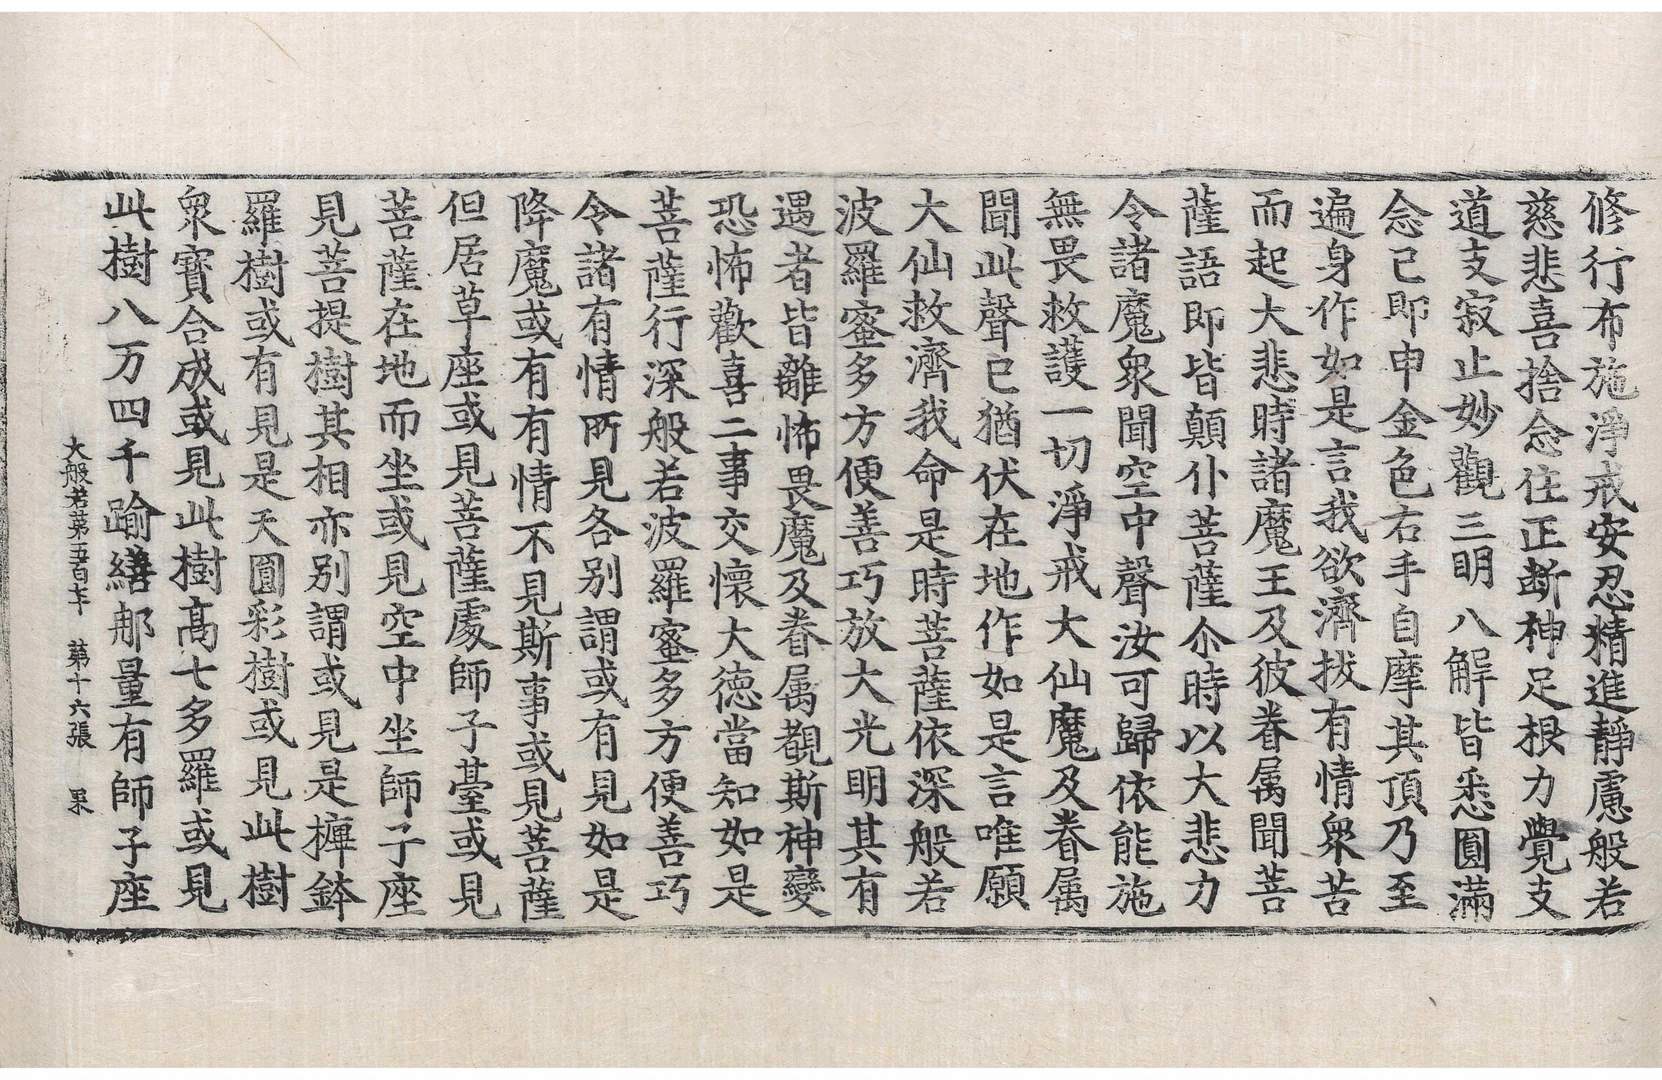 修行布施淨戒安忍精進靜慮般若
慈悲喜捨念住正断神足根力覺支
道支寂止妙觀三明八解皆悉圓滿
念已即申金色右手自摩其頂乃至
遍身作如是言我欲濟拔有情衆苦
而起大悲時諸魔王及彼眷属聞菩
薩語即皆顛仆菩薩尒時以大悲力
令諸魔衆聞空中聲汝可歸依能施
無畏救護一切淨戒大仙魔及眷属
聞此聲已猶伏在地作如是言唯願
大仙救濟我命是時菩薩依深般若
波羅蜜多方便善巧放大光明其有
遇者皆離怖畏魔及眷属覩斯神變
恐怖歡喜二事交懷大德當知如是
菩薩行深般若波羅蜜多方便善巧
令諸有情所見各別謂或有見如是
降魔或有有情不見斯事或見菩薩
但居草座或見菩薩處師子臺或見
菩薩在地而坐或見空中坐師子座
見菩提樹其相亦別謂或見是擵鉢
羅樹或有見是天圓彩樹或見此樹
衆寶合成或見此樹高七多羅或見
此樹八万四千踰繕那量有師子座
大般若第五百七十　第十六張　果